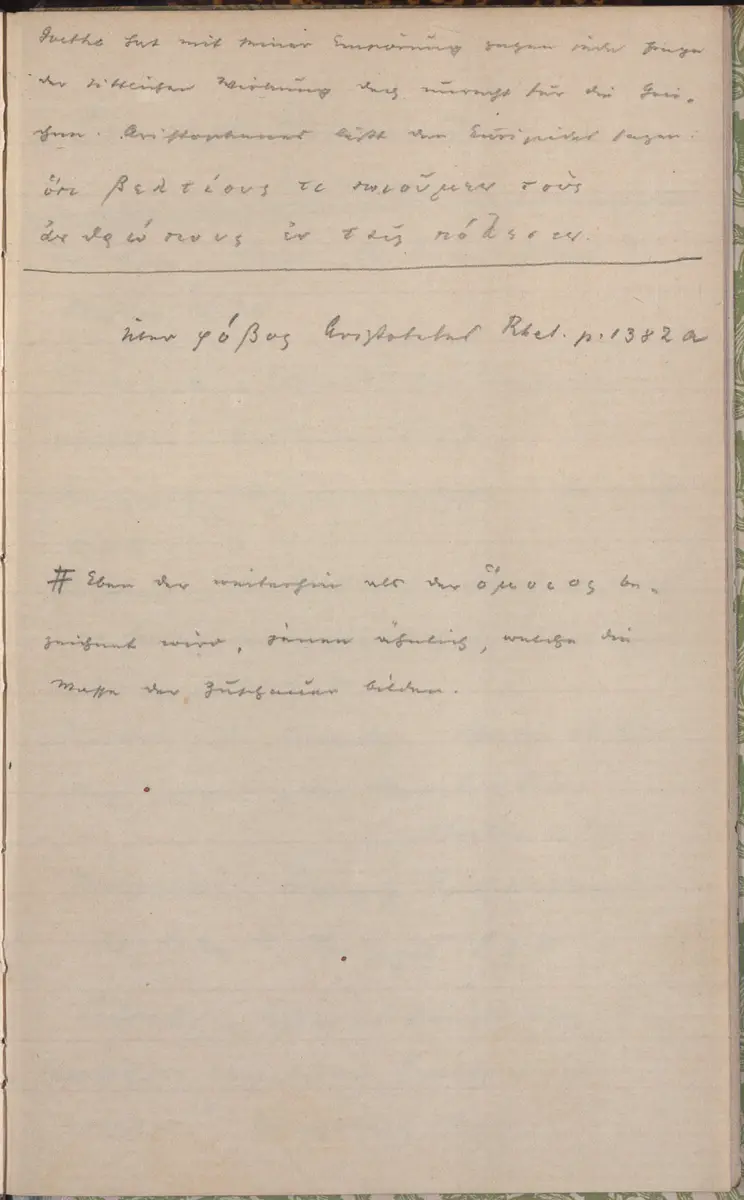 Goethe hat mit seiner Empörung gegen jede Frage
der sittlichen Wirkung doch unrecht für die Grie-
chen. Aristophanes läßt den Euripides sagen:
ὅτι βελτίους τε ποιοῦμεν τοὺς
ἀνθρώπους ἐν ταῖς πόλεσιν.
über φόβος Aristoteles Rhet. p. 1382 a
# Eben der weiterhin als der ὅμοιος be-
zeichnet wird, jenen ähnlich, welche die
Masse der Zuschauer bilden.